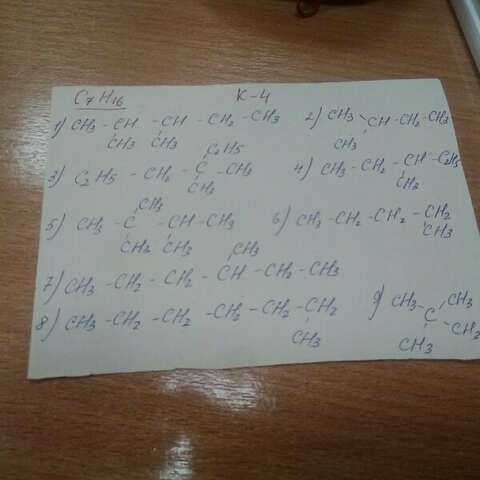 C7H16 K-4
1) CH3 - CH - CH - CH2 - CH3
CH3 CH3
2) CH3 CH - CH2 - CH3
CH3
C2H5
3) C2H5 - CH2 - C - CH3
CH3
4) CH3 - CH2 - CH - C2H5
CH3
CH3
5) CH3 - C - CH - CH3
CH3 CH3
6) CH3 - CH2 - CH2 - CH2
CH3
CH3
7) CH3 - CH2 - CH2 - CH - CH2 - CH3
8) CH3 - CH2 - CH2 - CH2 - CH2 - CH2
CH3
9) CH3 CH3
C
CH3 CH3